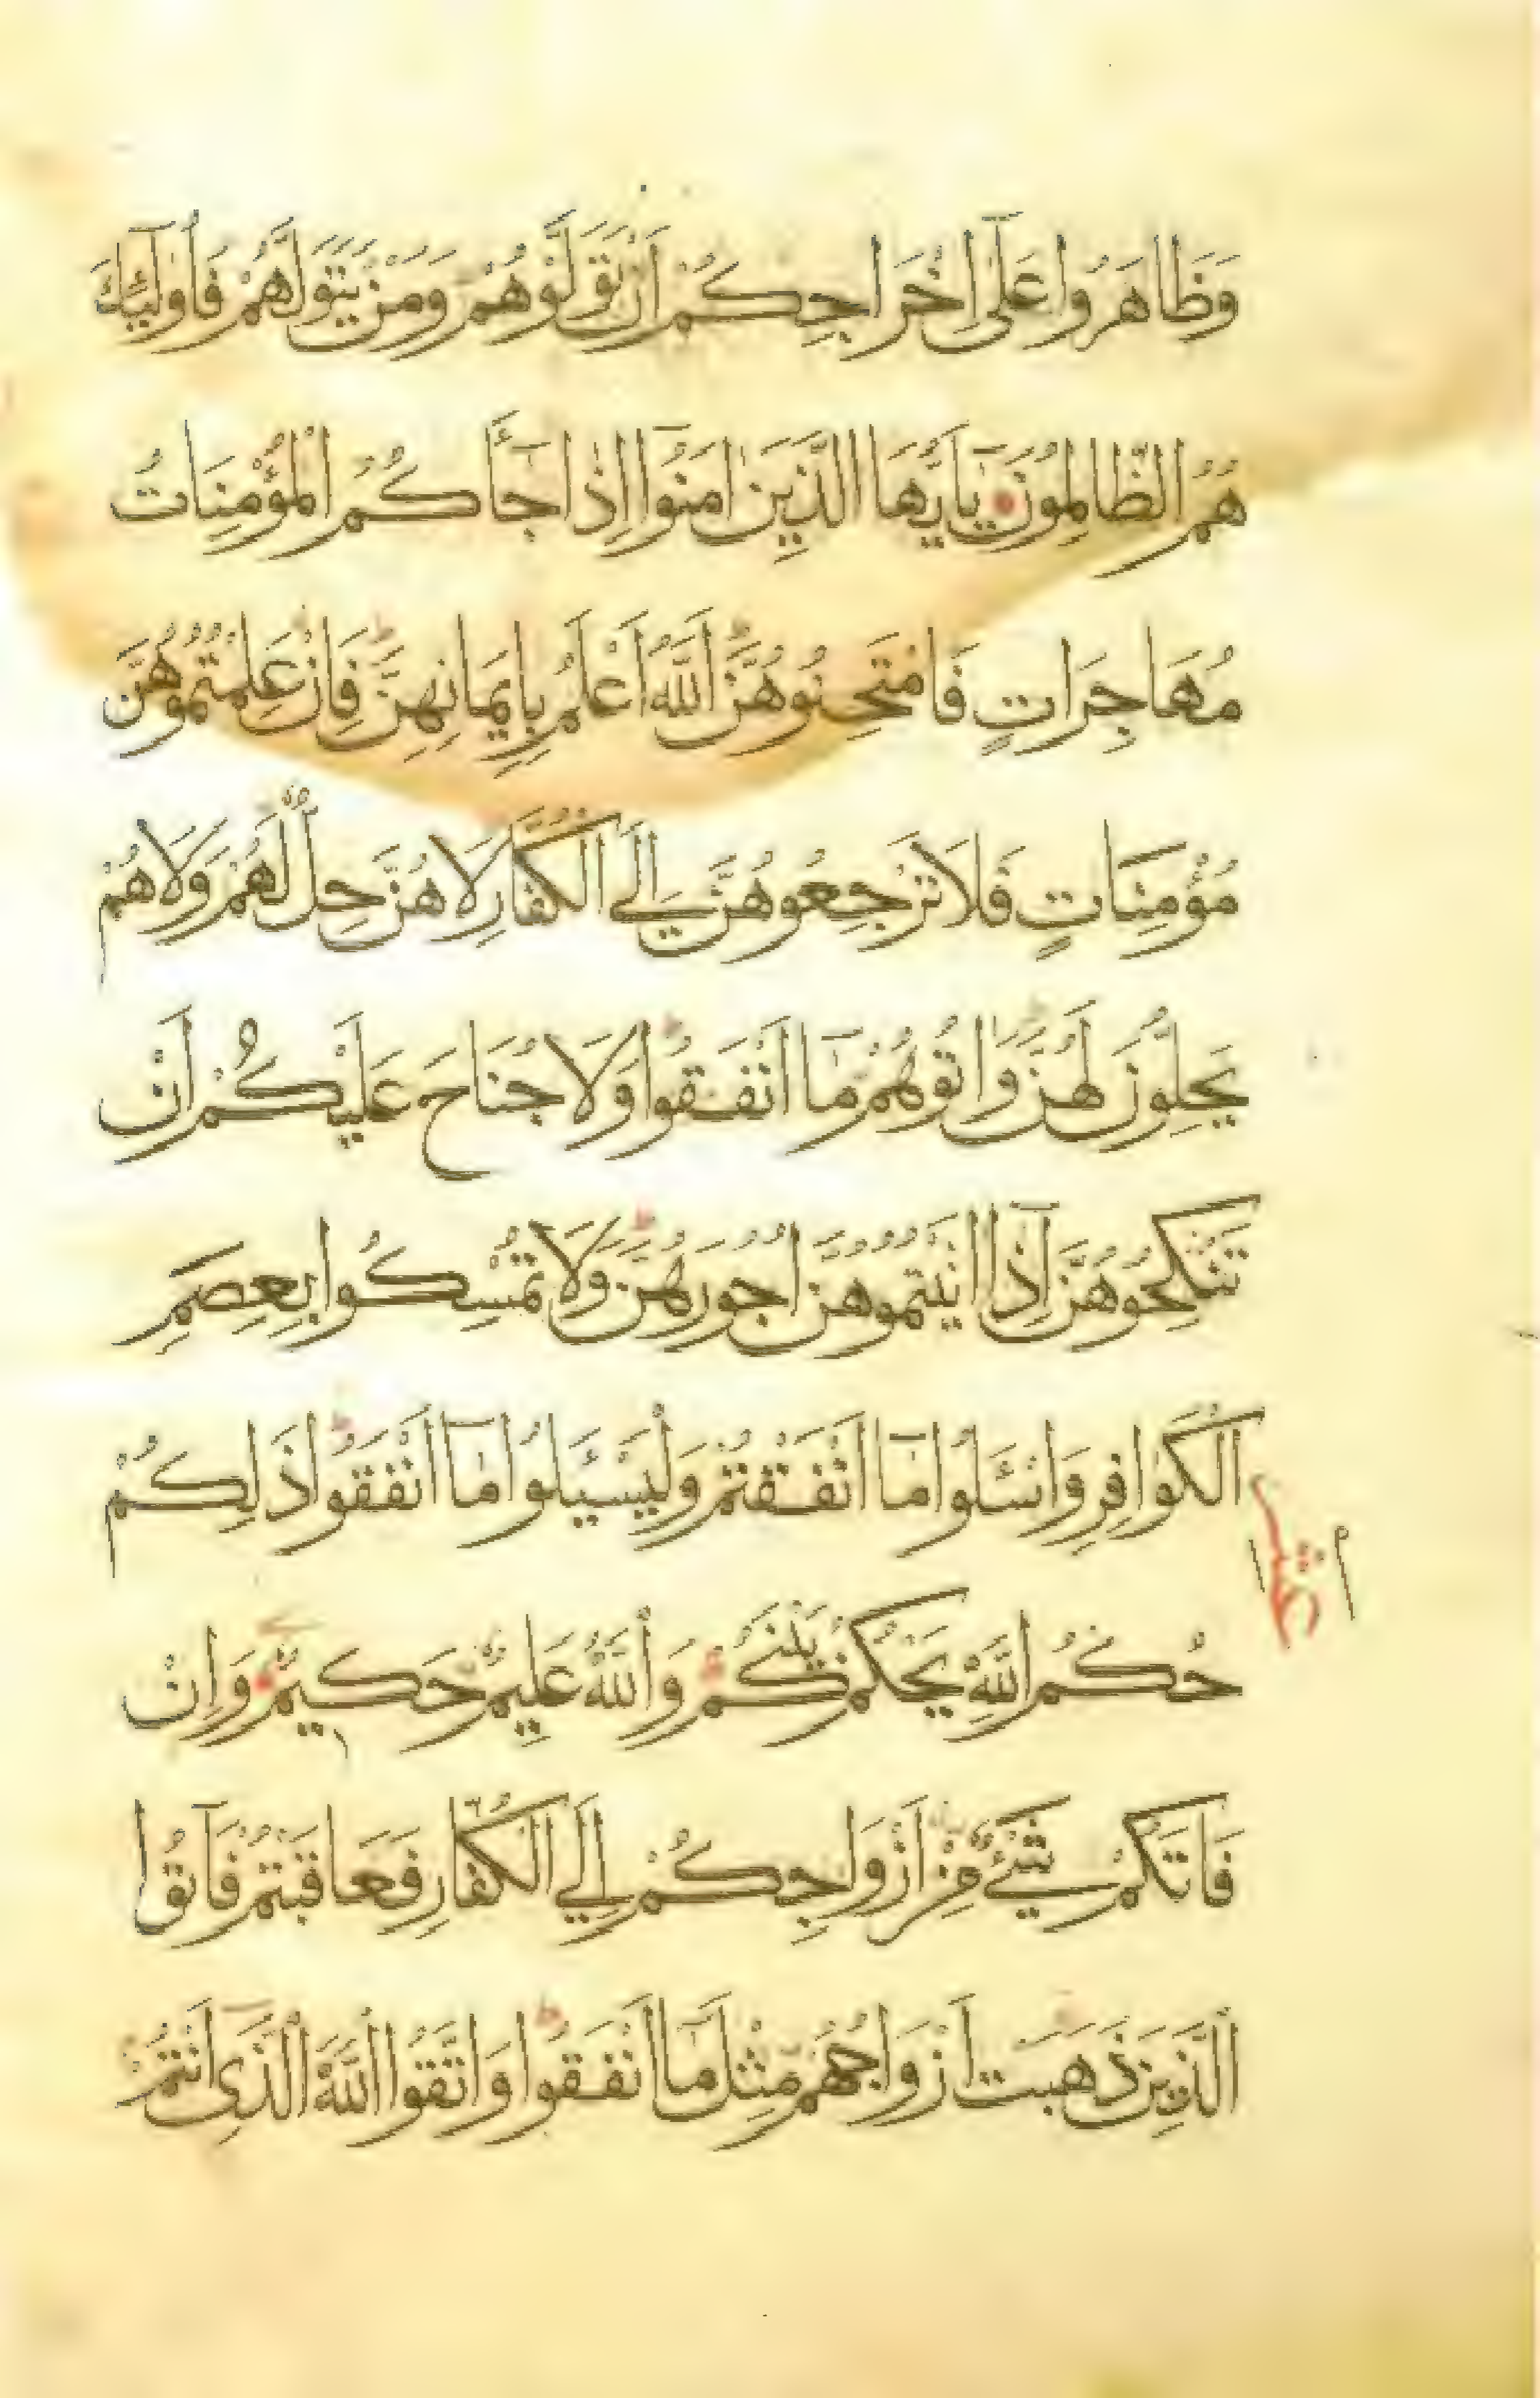 وَظَاهَرُوا عَلَىٰ اِخْرَاجِكُمْ اَنْ تَوَلَّوْهُمْ وَمَنْ يَتَوَلَّهُمْ فَاُولٰٓئِكَ
هُمُ الظَّالِمُونَ يَآ اَيُّهَا الَّذِينَ اٰمَنُوٓا اِذَا جَآءَكُمُ الْمُؤْمِنَاتُ
مُهَاجِرَاتٍ فَامْتَحِنُوهُنَّ اَللّٰهُ اَعْلَمُ بِاِيمَانِهِنَّ فَاِنْ عَلِمْتُمُوهُنَّ
مُؤْمِنَاتٍ فَلَا تَرْجِعُوهُنَّ اِلَى الْكُفَّارِ لَا هُنَّ حِلٌّ لَهُمْ وَلَا هُمْ
يَحِلُّونَ لَهُنَّ وَاٰتُوهُمْ مَآ اَنْفَقُوا وَلَا جُنَاحَ عَلَيْكُمْ اَنْ
تَنْكِحُوهُنَّ اِذَآ اٰتَيْتُمُوهُنَّ اُجُورَهُنَّ وَلَا تُمْسِكُوا بِعِصَمِ
الْكَوَافِرِ وَاسْئَلُوا مَآ اَنْفَقْتُمْ وَلْيَسْئَلُوا مَآ اَنْفَقُوا ذٰلِكُمْ
حُكْمُ اللّٰهِ يَحْكُمُ بَيْنَكُمْ وَاللّٰهُ عَلِيمٌ حَكِيمٌ وَاِنْ
فَاتَكُمْ شَيْءٌ مِنْ اَزْوَاجِكُمْ اِلَى الْكُفَّارِ فَعَاقَبْتُمْ فَاٰتُوا
الَّذِينَ ذَهَبَتْ اَزْوَاجُهُمْ مِثْلَ مَآ اَنْفَقُوا وَاتَّقُوا اللّٰهَ الَّذِىٓ اَنْتُمْ